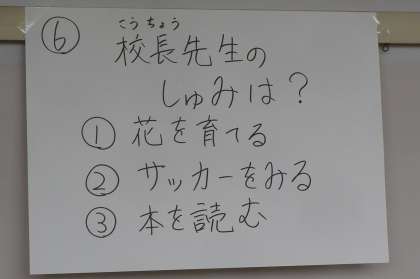 ⑥ こうちょう
校長先生の
しゅみは？
① 花を育てる
② サッカーをみる
③ 本を読む